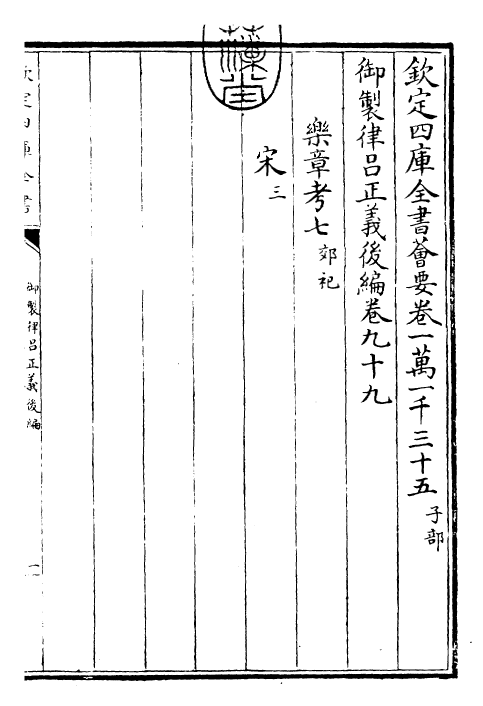 欽定四庫全書薈要卷一萬一千三十五 子部
御製律呂正義後編卷九十九
樂章考七 郊祀
宋三
欽定四庫全書
御製律呂正義後編
一